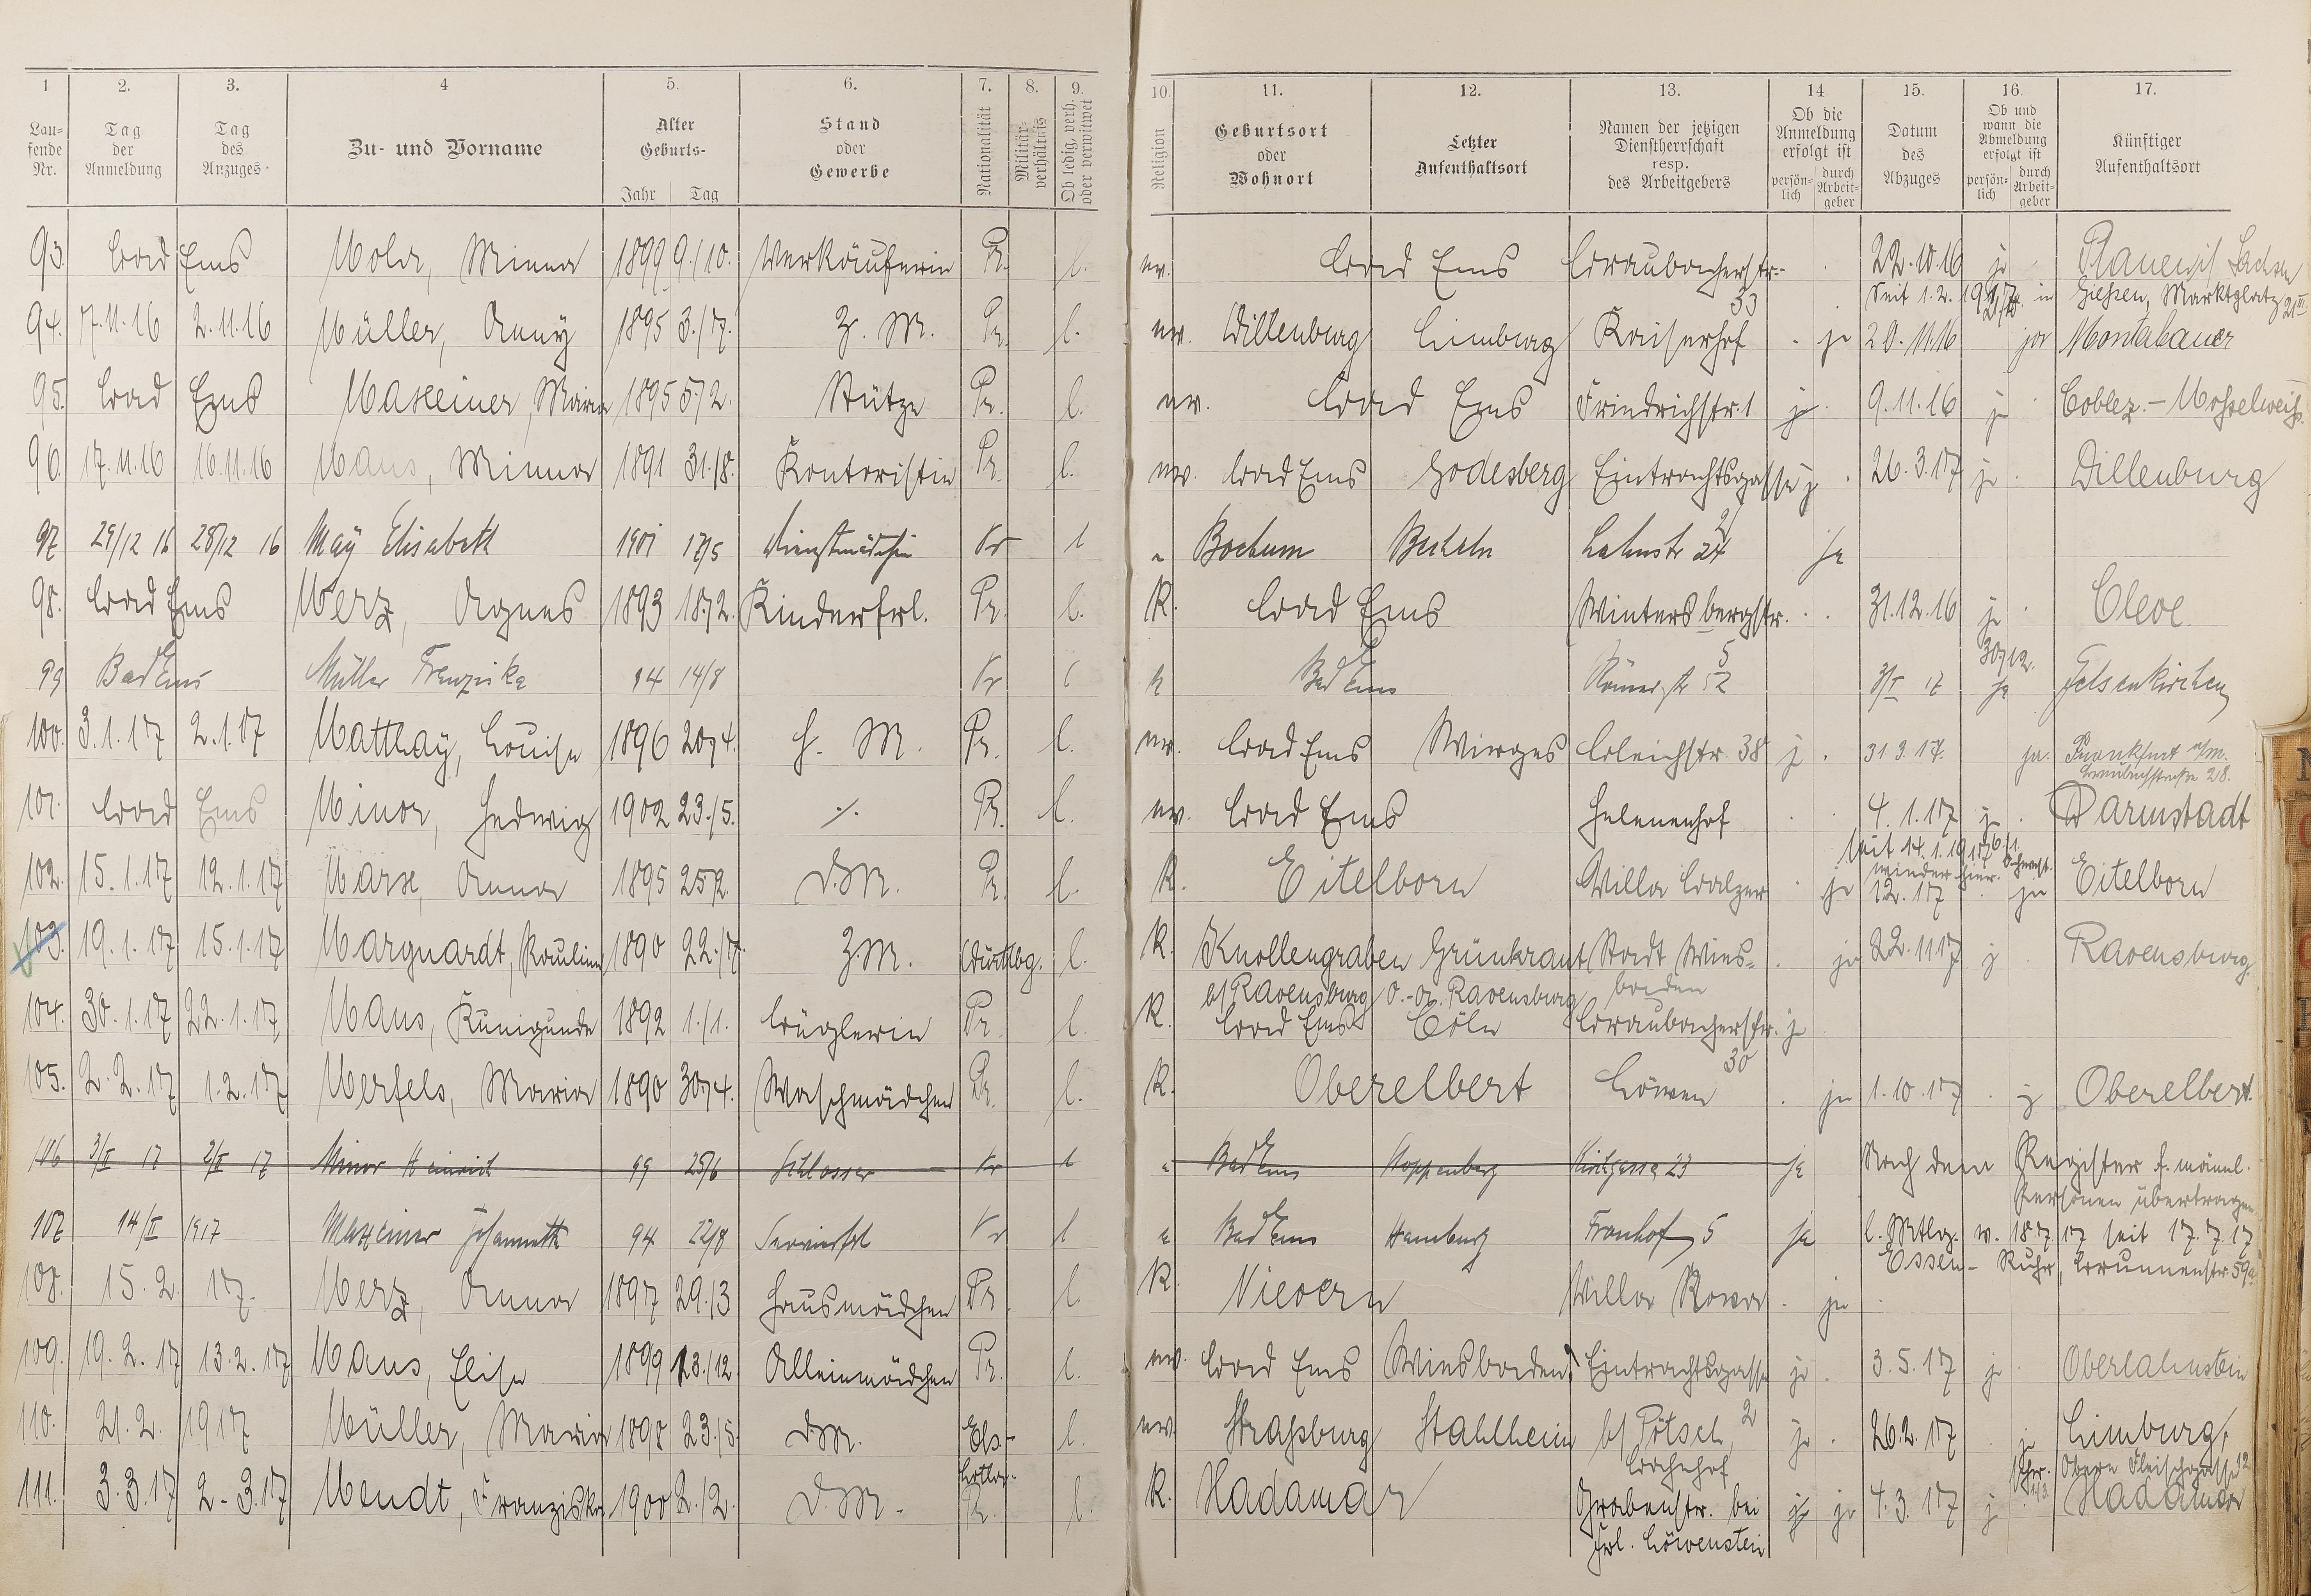 1 2. 3. 4 5. 6. 7. 8. 9. 10. 11. 12. 13. 14. 15. 16. 17.
Lau-
fende
Nr.
Tag
der
Anmeldung
Tag
des
Anzuges
Zu- und Vorname
Alter
Geburts-
Jahr Tag
Stand
oder
Gewerbe
Nationalität
Militär-
verhältnis
Ob ledig, verh.
oder verwitwet
Religion
Geburtsort
oder
Wohnort
Letzter
Aufenthaltsort
Namen der jetzigen
Dienstherrschaft
resp.
des Arbeitgebers
Ob die
Anmeldung
erfolgt ist
persön-
lich
durch
Arbeit-
geber
Datum
des
Abzuges
Ob und
wann die
Abmeldung
erfolgt ist
persön-
lich
durch
Arbeit-
geber
Künftiger
Aufenthaltsort
93. Bad Ems Mola, Minna 1899 9./10. Verkäuferin Pr. l. ev. Bad Ems Braubacherstr. 33 22.10.16 ja Plauen i/ Sachsen
Seit 1.2.1917 in Gießen, Marktplatz 21 III
94. 7.11.16 2.11.16 Müller, Anny 1895 3./7. Z. M. Pr. l. ev. Dillenburg Limburg Kaiserhof ja 20.11.16 ja Montabaur
95. Bad Ems Maxeiner, Maria 1895 5/2. Stütze Pr. l. ev. Bad Ems Friedrichstr. 1 ja 9.11.16 ja Coblez.-Mosselweiß.
96. 17.11.16 16.11.16 Maus, Minna 1891 31./8. Kontoristin Pr. l. ev. Bad Ems Godesberg Eintrachtsgasse 2 j 26.3.17 ja Dillenburg
97 29/12 16 28/12 16 May Elisabeth 1901 17/5 Dienstmädchen Pr l e Bochum Becheln Lahnstr 24 ja
98. Bad Ems Merz, Agnes 1893 18./2. Kinderfrl. Pr. l. K. Bad Ems Wintersbergstr. 5 31.12.16 ja 30/12. Cleve
99 Bad Ems Müller Franziska 94 14/8 Pr l k Bad Ems Römerstr 52 3/I 17 ja Gelsenkirchen
100. 3.1.17 2.1.17 Matthay, Louise 1896 20/4. H. M. Pr. l. ev. Bad Ems Wirges Bleichstr. 38 j 31 3.17. ja. Frankfurt a/m.
Braubachstraße 2/8.
101. Bad Ems Minor, Hedwig 1902 23./5. ./. Pr. l. ev. Bad Ems Helenenhof 4.1.17 j Darmstadt
Seit 14.1.1917
wieder hier.
102. 15.1.17 12.1.17 Marx, Anna 1895 25/2. D.M. Pr. l. K. Eitelborn Villa Balzer ja 12.17 ja Eitelborn
103. 19.1.17 15.1.17 Marquardt, Pauline 1890 22./7. Z.M. Württbg. l. K. Knollengraben Grünkraut Stadt Wies- ja 22.11.17 j Ravensburg
b/ Ravensburg O.-A. Ravensburg baden
104. 30.1.17 22.1.17 Maus, Kunigunde 1892 1./1. Büglerin Pr. l. K. Bad Ems Cöln Braubacherstr. 30 j
105. 2.2.17 1.2.17 Merfels, Maria 1890 30./4. Waschmädchen Pr. l. K. Oberelbert Löwen ja 1.10.17 j Oberelbert.
106 3/II 17 2/II 17 Minor Heinrich 99 25/6 Schlosser Pr l e Bad Ems Hoppenberg Kirchgasse 23 ja Nach dem Register f. männl.
Personen übertragen
107 14/II 1917 Maxeiner Johannette 94 22/8 Servierfrl Pr l e Bad Ems Hamburg Fronhof 5 ja l. Mtlg. v. 18.7.17 seit 17.7.17
Essen-Ruhr, Brunnenstr. 59a.
108. 15.2. 17. Merz, Anna 1897 29./3 Hausmädchen Pr. l. K. Nievern Villa Rosa ja
109. 19.2.17 13.2.17 Maus, Elise 1899 13./12. Alleinmädchen Pr. l. ev. Bad Ems Wiesbaden Eintrachtsgasse 2 ja 3.5.17 ja Oberlahnstein
110. 21.2. 1917 Müller, Maria 1898 23./5. D.M. Els.-Lothr. l. ev. Straßburg Stahlheim b/ Pötsch, Bahnhof ja 26.2.17 ja Limburg,
Obere Fleischgasse 12
111. 3.3.17 2.3.17 Mendt, Franziska 1900 2./2. D.M. Pr. l. K. Hadamar Grabenstr. bei ja ja 4.3.17 j Hadamar
Frl. Löwenstein